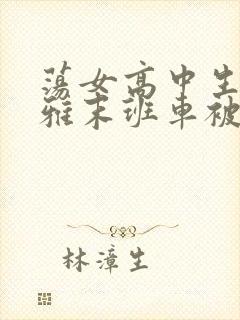 荡女高中生
雅末班车被
林漳生